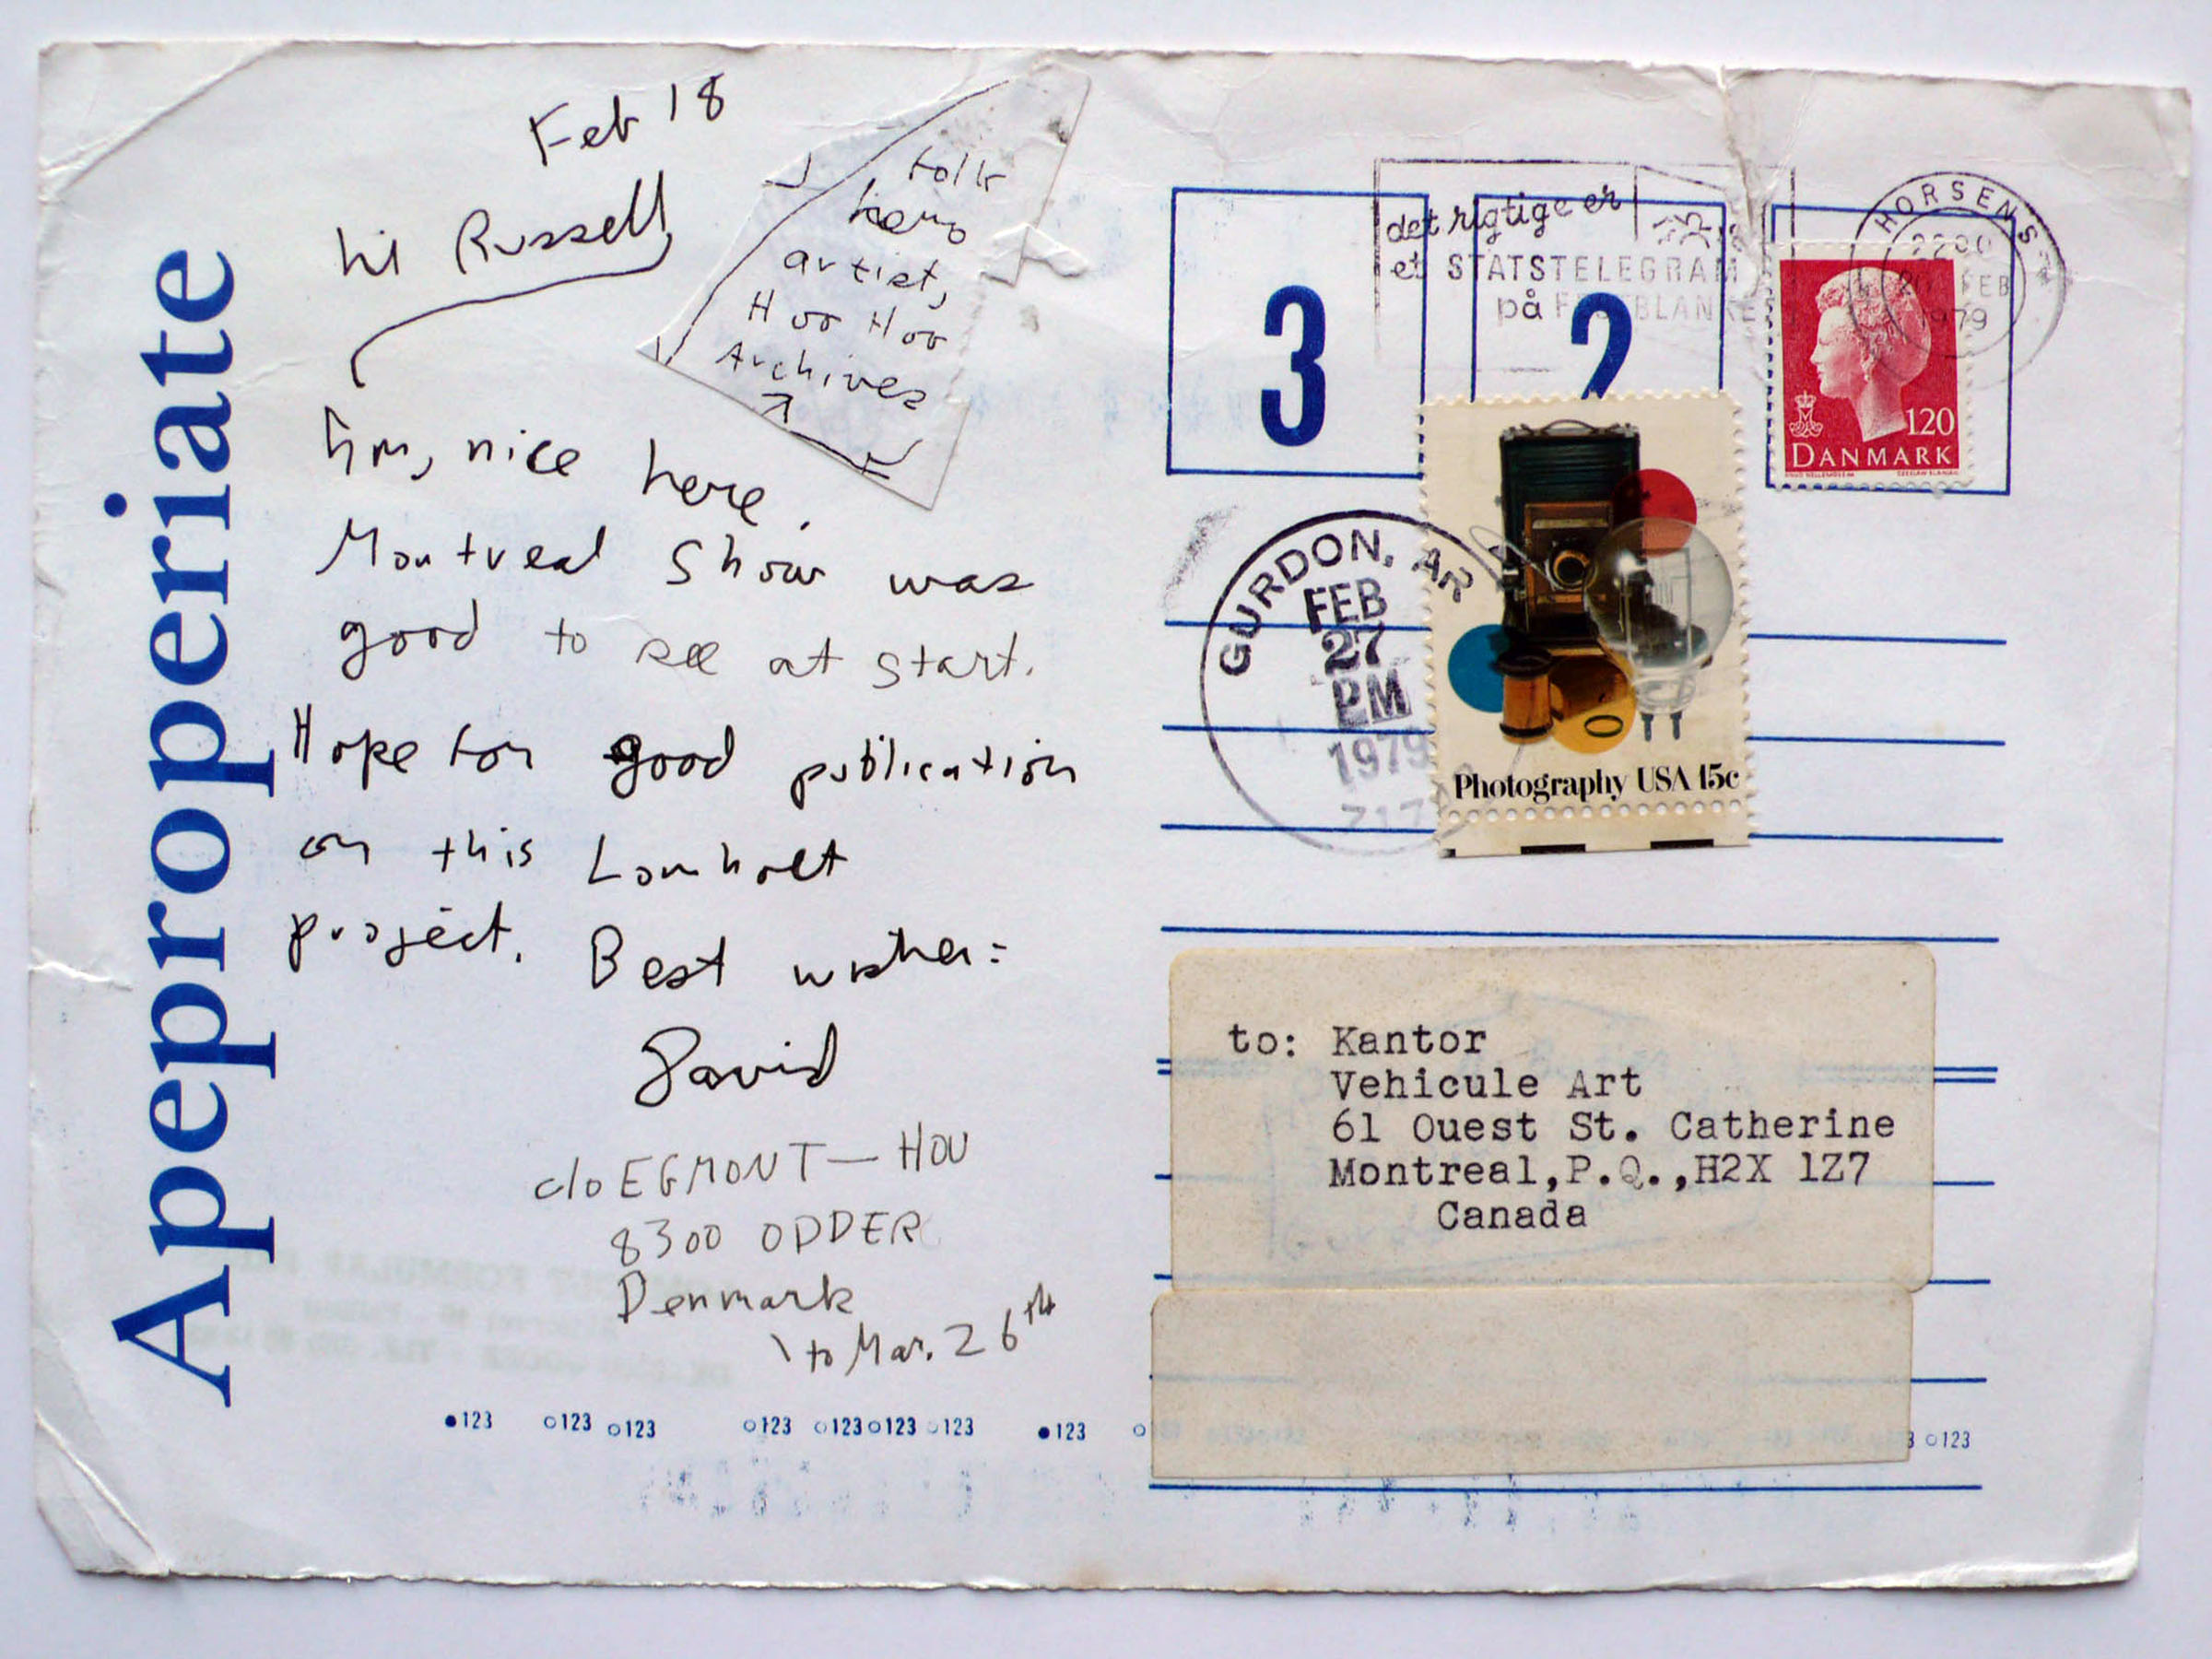 Apeproperiate
Feb 18
hi Russell,
hm, nice here.
Montreal show was
good to see at start.
Hope for good publication
on this Lomholt
project. Best wishes:
David
c/o EGMONT — HOV
8300 ODDER
Denmark
to Mar. 26th
folk
hero
artist,
Hoo Hoo
Archives
3
2
det rigtige er
et STATSTELEGRAM
på
HORSENS
FEB
1979
120
DANMARK
GURDON, AR
FEB
27
PM
1979
Photography USA 15c
to: Kantor
Vehicule Art
61 Ouest St. Catherine
Montreal,P.Q.,H2X 1Z7
Canada
●123 ○123 ○123 ○123 ○123 ○123 ○123 ●123 ○123